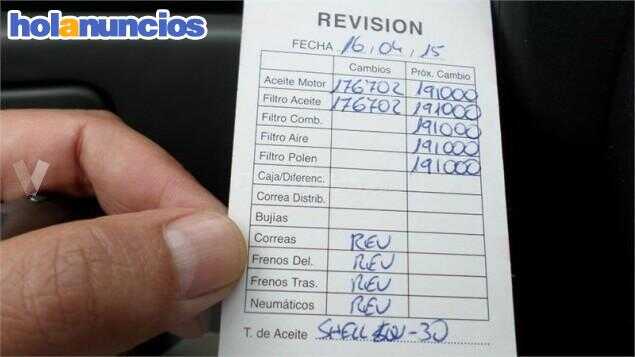 holanuncios
REVISION
FECHA 16.04.15
Cambios Próx. Cambio
Aceite Motor 176702 191000
Filtro Aceite 176702 191000
Filtro Comb. 191000
Filtro Aire 191000
Filtro Polen 191000
Caja/Diferenc.
Correa Distrib.
Bujías
Correas REV
Frenos Del. REV
Frenos Tras. REV
Neumáticos REV
T. de Aceite SHELL -30